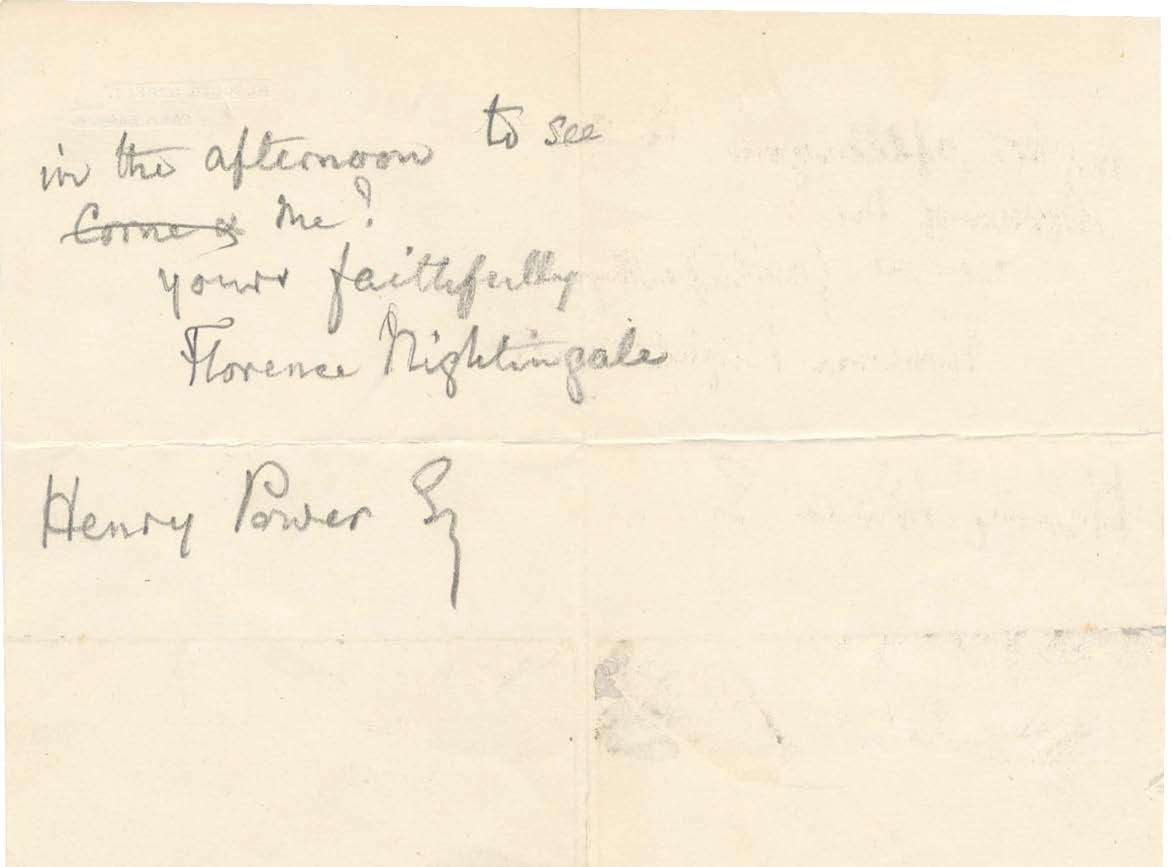 in the afternoon to see
~~Come &~~ me?
yours faithfully
Florence Nightingale
Henry Power Esq